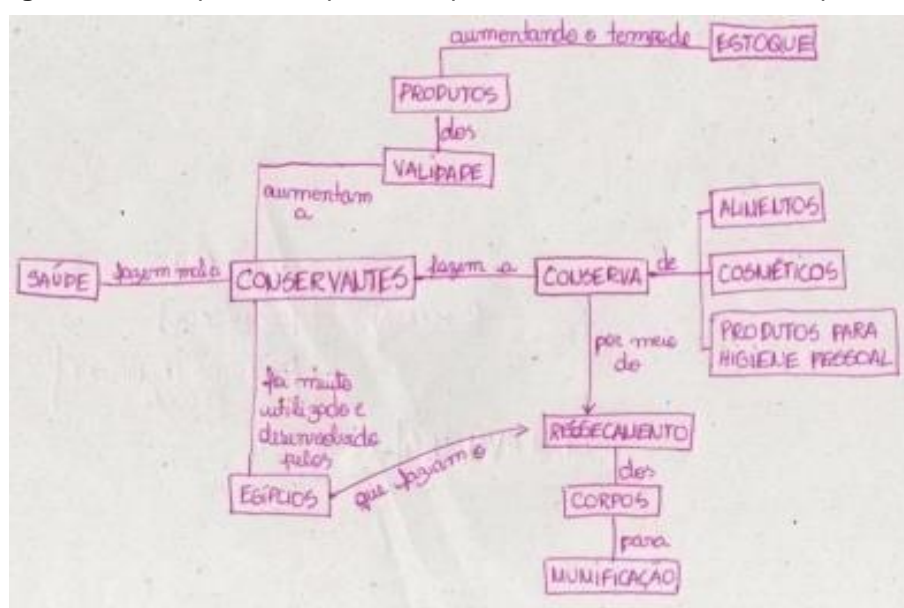 aumentando o tempo de ESTOQUE
PRODUTOS
dos
VALIDADE
aumentam
a
ALIMENTOS
SAÚDE fazem mal a CONSERVANTES fazem a CONSERVA de COSMÉTICOS
PRODUTOS PARA
HIGIENE PESSOAL
por meio
do
foi muito
utilizado e
desenvolvido
pelos
RESSECAMENTO
que faziam o
dos
EGÍPCIOS
CORPOS
para
MUMIFICAÇÃO